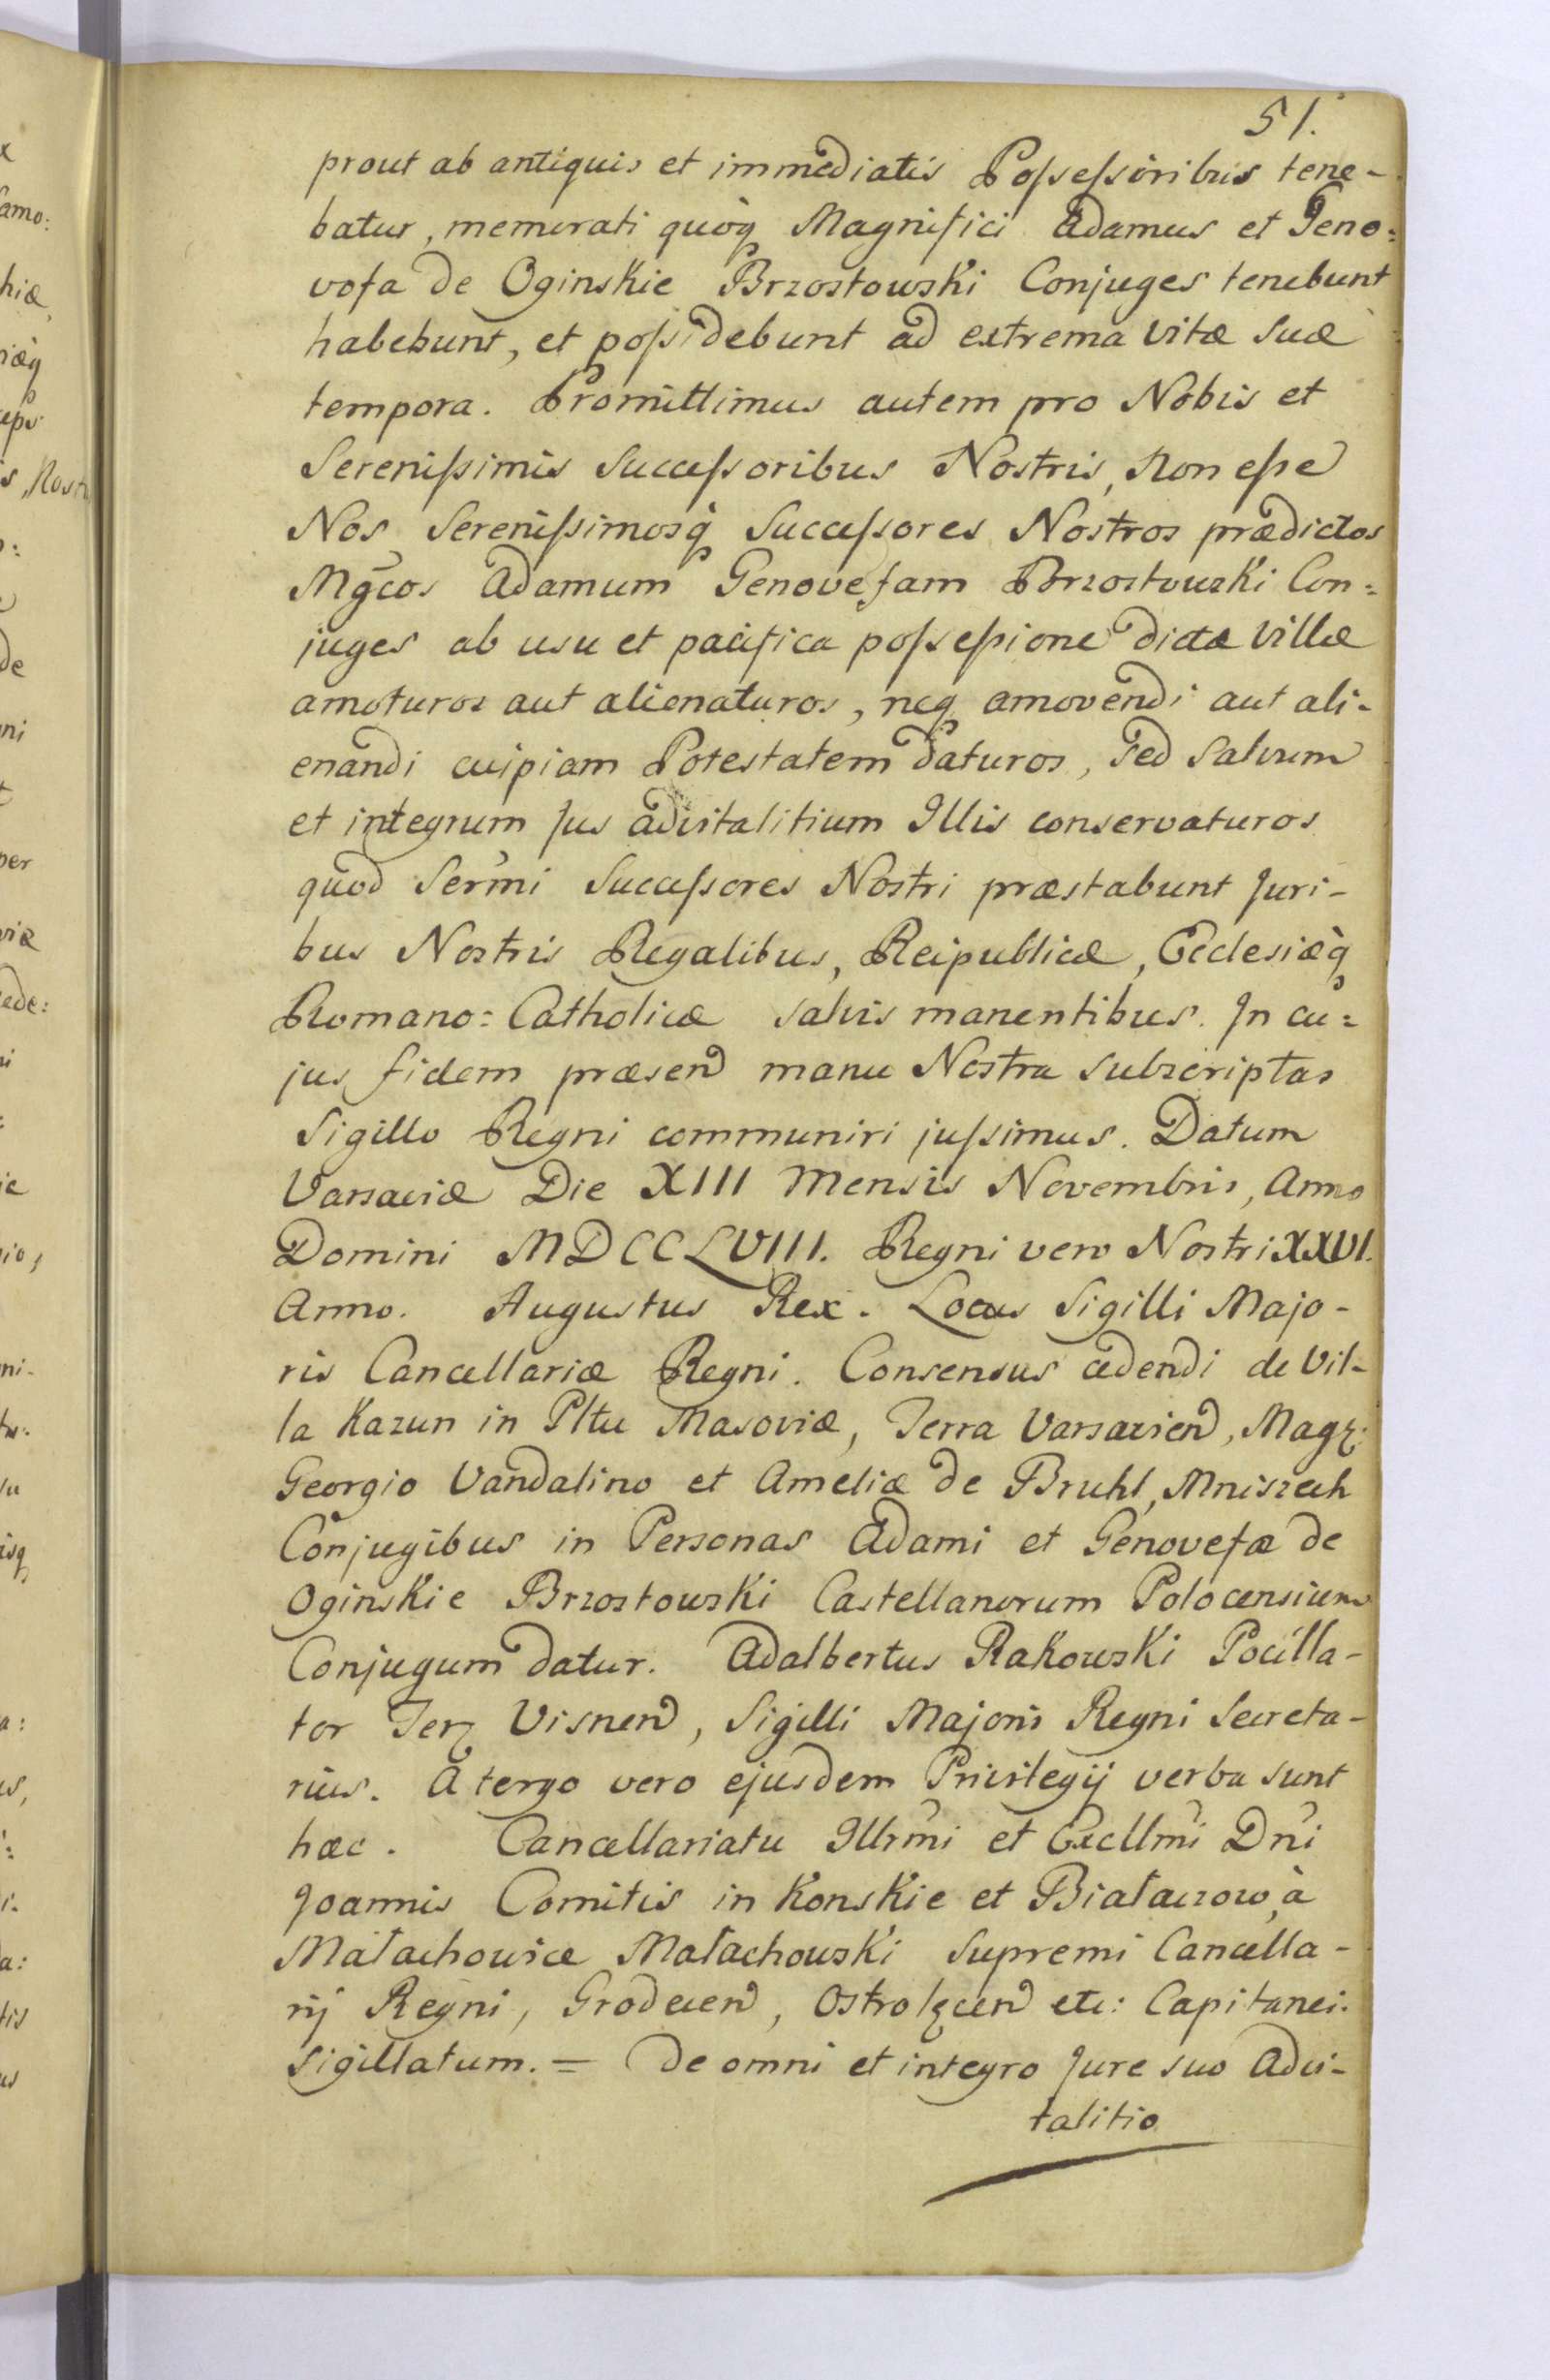 51.
prout ab antiquis et immediatis Possessoribus tene-
batur, memorati quòq Magnifici Adamus et Geno:
vefa de Oginskie Brzostowski Conjuges tenebunt
habebunt, et possidebunt ad extrema vitæ suæ
tempora. Promittimus autem pro Nobis et
Serenissimis Successoribus Nostris, Non esse
Nos Serenissimosq̀ Successores Nostros prædictos
Mgcos Adamum Genovefam Brzostowski Con:
juges ab usu et pacifica possessione dictæ Villæ
amoturos aut alienaturos, neq amovendi aut ali-
enandi cuipiam Potestatem daturos, Sed Salvum
et integrum Jus advitalitium Illis conservaturos
quod Serm̃i Successores Nostri præstabunt Juri-
bus Nostris Regalibus, Reipublicæ, Ecclesiæq̀
Romano: Catholicæ salvis manentibus. In cu:
jus fidem præsend manu Nostra subscriptas
Sigillo Regni communiri jussimus. Datum
Varsaviæ Die XIII Mensis Novembris, Anno
Domini MDCCLVIII. Regni vero Nostri XXVI.
Anno. Augustus Rex. Locus Sigilli Majo-
ris Cancellariæ Regni. Consensus cedendi de Vil-
la Kazun in Pltu Masoviæ, Terra Varsaviend, Magz:
Georgio Vandalino et Ameliæ de Bruhl, Mniszech
Conjugibus in Personas Adami et Genovefæ de
Oginskie Brzostowski Castellanorum Polocensium
Conjugum datur. Adalbertus Rakowski Pocilla-
tor Terz Visnend, Sigilli Majoris Regni Secreta-
rius. A tergo vero ejusdem Privilegij verba sunt
hæc. Cancellariatu Illrm̃i et Excllm̃i Dñi
Joannis Comitis in Konskie et Białaczow, à
Małachowice Małachowski Supremi Cancella-
rij Regni, Grodecend, Ostrolęcend etc: Capitanei.
Sigillatum. = De omni et integro Jure suo Advi-
talitio